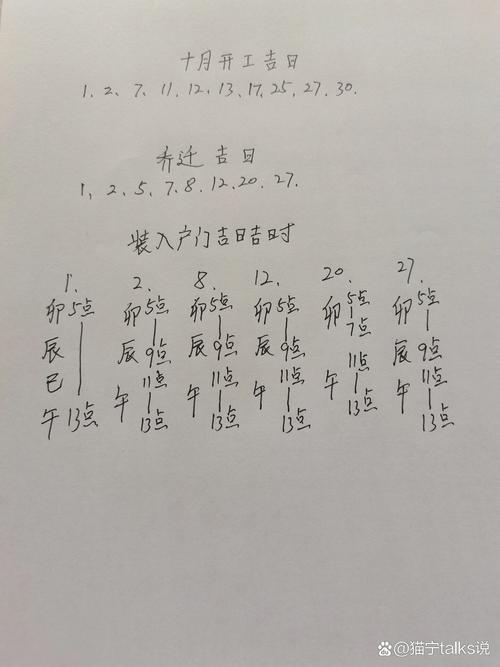 十月开工吉日
1、2、7、11、12、13、17、25、27、30.
乔迁吉日
1、2、5、7、8、12、20、27.
装入户门吉日吉时
1. 2. 8. 12. 20. 27.
卯5点 卯5点 卯5点 卯5点 卯5点 卯5点
7点
辰 辰9点 辰9点 辰9点 辰9点
巳 11点 11点 11点 11点 11点
午13点 午13点 午13点 午13点 午13点 午13点
@猫宁talks说